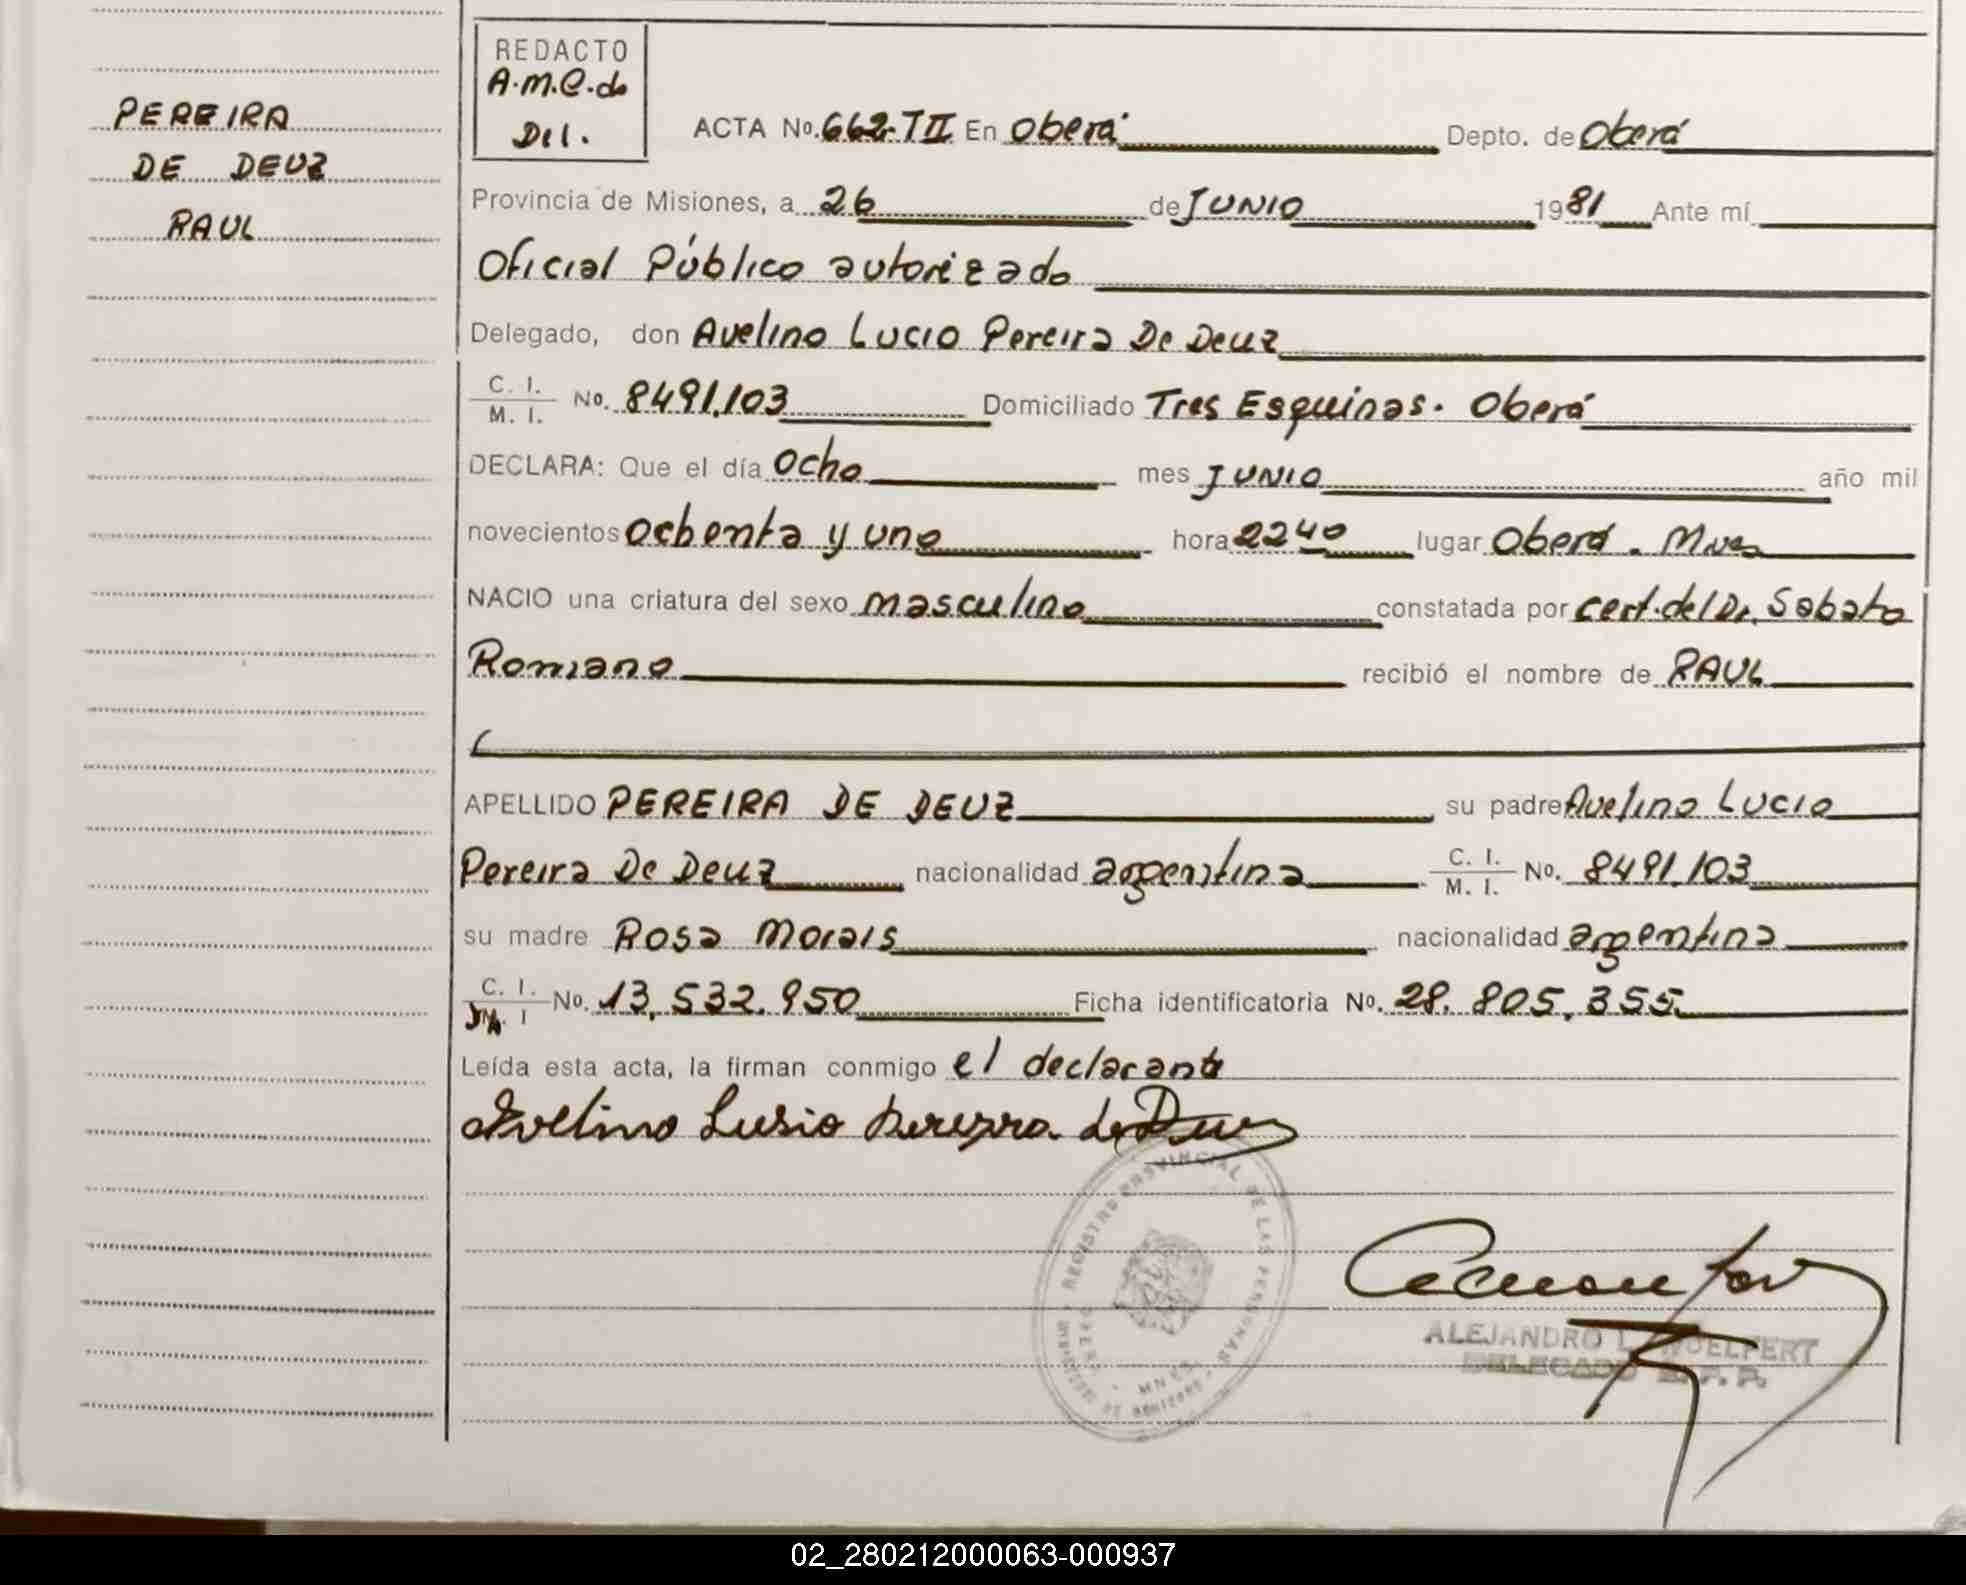 PEREIRA
DE DEUZ
RAUL
REDACTO
A.M.C.do
Del.
ACTA No. 662-TII En Oberá Depto. de Oberá
Provincia de Misiones, a 26 de JUNIO 1981 Ante mí
Oficial Público autorizado
Delegado, don Avelino Lucio Pereira De Deuz
C. I. / M. I. No. 8491.103 Domiciliado Tres Esquinas. Oberá
DECLARA: Que el día ocho mes JUNIO año mil
novecientos ochenta y uno hora 2240 lugar Oberá. Mnes
NACIO una criatura del sexo masculino constatada por cert. del Dr. Sabato
Romano recibió el nombre de RAUL
APELLIDO PEREIRA DE DEUZ su padre Avelino Lucio
Pereira De Deuz nacionalidad argentina C. I. / M. I. No. 8491.103
su madre Rosa Morais nacionalidad argentina
C. I. / M. I No. 13.532.950 Ficha identificatoria No. 28.805.355
Leída esta acta, la firman conmigo el declarante
Avelino Lusio Pereyra de Deuz
REGISTRO PROVINCIAL DE LAS PERSONAS
ALEJANDRO L. WOELFERT
DELEGADO R. P. P.
02_280212000063-000937